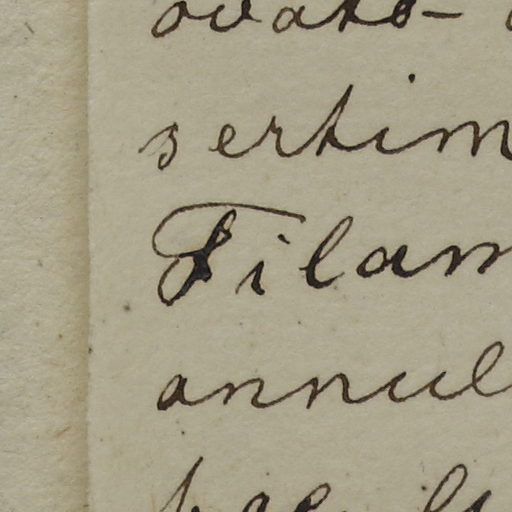 ovato-
sertim
Filam
annul